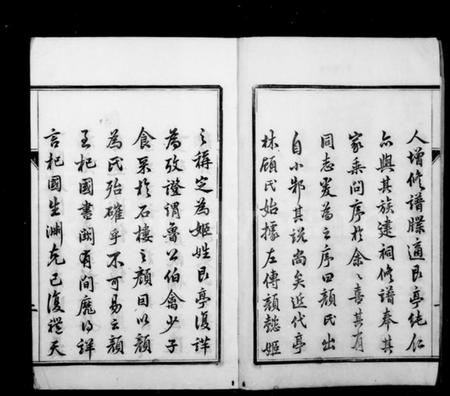 人增修譜牒適良亭純仁
亦與其族建祠修譜奉其
家乘問序於余余喜其有
同志爰為之序曰顏氏出
自小邾其說尚矣近代亭
林顧氏始據左傳顏懿姬
之稱定為姬姓良亭復詳
為攷證謂魯公伯禽少子
食采於石樓之顏因以顏
為氏殆確乎不可易云顏
子杞國書闕有間靡得詳
言杞國生淵克己復禮天